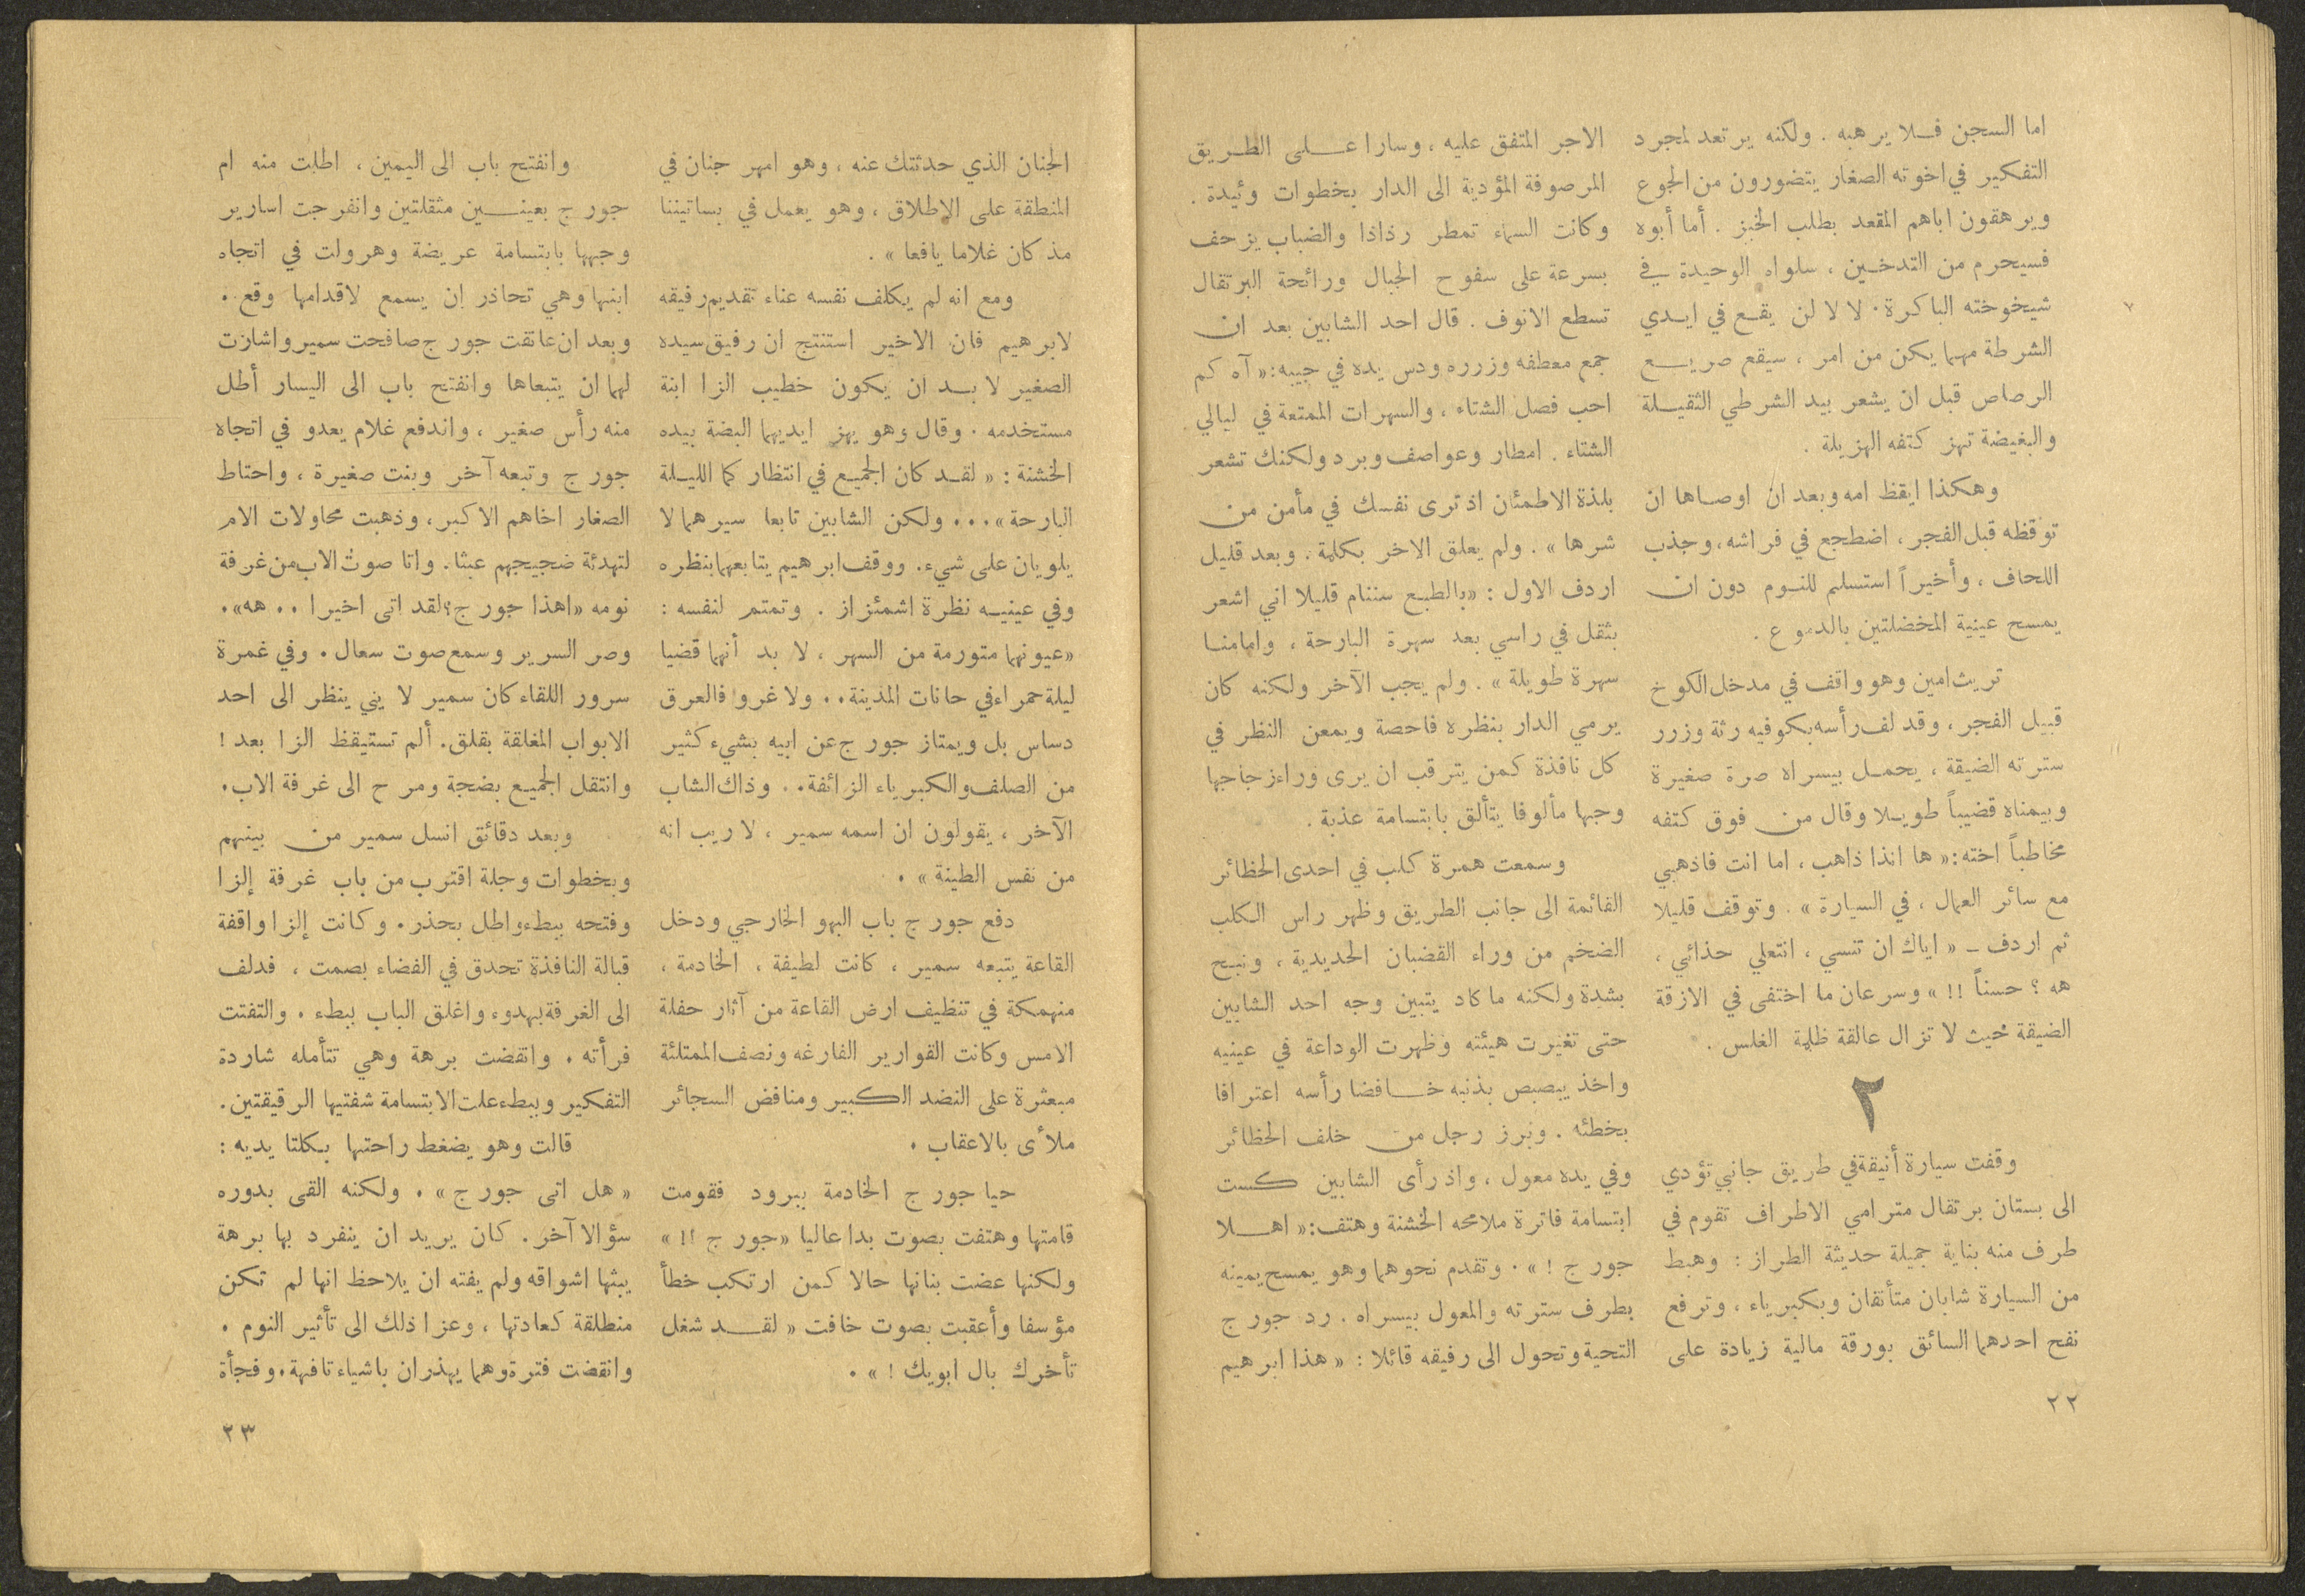 اما السجن فلا يرهبه . ولكنه يرتعد لمجرد
التفكير في اخوته الصغار يتضورون من الجوع
ويرهقون اباهم المقعد بطلب الخبز . أما أبوه
فسيحرم من التدخين ، سلواه الوحيدة في
شيخوخته الباكرة . لا لا لن يقع في ايدي
الشرطة مهما يكن من امر ، سيقع صريع
الرصاص قبل ان يشعر بيد الشرطي الثقيلة
والبغيضة تهز كتفه الهزيلة .
وهكذا ايقظ امه وبعد ان اوصاها ان
توقظه قبل الفجر ، اضطجع في فراشه ، وجذب
اللحاف ، وأخيراً استسلم للنوم دون ان
يمسح عينية المخضلتين بالدموع .
تريث امين وهو واقف في مدخل الكوخ
قبيل الفجر ، وقد لف رأسه بكوفيه رثة وزرر
سترته الضيقة ، يحمل بيسراه صرة صغيرة
وبيمناه قضيباً طويلا وقال من فوق كتفه
مخاطباً اخته : « ها انذا ذاهب ، اما انت فاذهبي
مع سائر العمال ، في السيارة » . وتوقف قليلا
ثم اردف - « اياك ان تنسي ، انتعلي حذائي ،
هه ؟ حسناً !! » وسرعان ما اختفى في الازقة
الضيقة حيث لا تزال عالقة ظلمة الغلس .
٢
وقفت سيارة أنيقة في طريق جانبي تؤدي
الى بستان برتقال مترامي الاطراف تقوم في
طرف منه بناية جميلة حديثة الطراز : وهبط
من السيارة شابان متأنقان وبكبرياء ، وترفع
نفح احدهما السائق بورقة مالية زيادة على
الاجر المتفق عليه ، وسارا على الطريق
المرصوفة المؤدية الى الدار بخطوات وئيدة .
وكانت السماء تمطر رذاذا والضباب يزحف
بسرعة على سفوح الجبال ورائحة البرتقال
تسطع الانوف . قال احد الشابين بعد ان
جمع معطفه وزرره ودس يده في جيبه : « آه كم
احب فصل الشتاء ، والسهرات الممتعة في ليالي
الشتاء . امطار وعواصف وبرد ولكنك تشعر
بلذة الاطمئنان اذ ترى نفسك في مأمن من
شرها » . ولم يعلق الاخر بكلمة . وبعد قليل
اردف الاول : « بالطبع سننام قليلا اني اشعر
بثقل في راسي بعد سهرة البارحة ، وامامنا
سهرة طويلة » . ولم يجب الآخر ولكنه كان
يرمي الدار بنظره فاحصة ويمعن النظر في
كل نافذة كمن يترقب ان يرى وراء زجاجها
وجها مألوفا يتألق بابتسامة عذبة .
وسمعت همرة كلب في احدى الحظائر
القائمة الى جانب الطريق وظهر راس الكلب
الضخم من وراء القضبان الحديدية ، ونبح
بشدة ولكنه ما كاد يتبين وجه احد الشابين
حتى تغيرت هيئته وظهرت الوداعة في عينيه
واخذ يبصبص بذنبه خافضا رأسه اعترافا
بخطئه . وبرز رجل من خلف الحظائر
وفي يده معول ، واذ رأى الشابين كست
ابتسامة فاترة ملامحه الخشنة وهتف : « اهلا
جورج ! » . وتقدم نحوهما وهو يمسح يمينه
بطرف سترته والمعول بيسراه . رد جورج
التحية وتحول الى رفيقه قائلا : « هذا ابرهيم
٢٢
الجنان الذي حدثتك عنه ، وهو امهر جنان في
المنطقة على الاطلاق ، وهو يعمل في بساتيننا
مذ كان غلاما يافعا » .
ومع انه لم يكلف نفسه عناء تقديم رفيقه
لابرهيم فان الاخير استنتج ان رفيق سيده
الصغير لا بد ان يكون خطيب الزا ابنة
مستخدمه . وقال وهو يهز ايديهما البضة بيده
الخشنة : « لقد كان الجميع في انتظار كما الليلة
البارحة » ... ولكن الشابين تابعا سيرهما لا
يلويان على شيء . ووقف ابرهيم يتابعهما بنظره
وفي عينيه نظرة اشمئزاز . وتمتم لنفسه :
« عيونهما متورمة من السهر ، لا بد أنهما قضيا
ليلة حمراء في حانات المدينة .. ولا غرو فالعرق
دساس بل ويمتاز جورج عن ابيه بشيء كثير
من الصلف والكبرياء الزائفة .. وذاك الشاب
الآخر ، يقولون ان اسمه سمير ، لا ريب انه
من نفس الطينة » .
دفع جورج باب البهو الخارجي ودخل
القاعة يتبعه سمير ، كانت لطيفة ، الخادمة ،
منهمكة في تنظيف ارض القاعة من آثار حفلة
الامس وكانت القوارير الفارغه ونصف الممتلئة
مبعثرة على النضد الكبير ومنافض السجائر
ملأى بالاعقاب .
حيا جورج الخادمة ببرود فقومت
قامتها وهتفت بصوت بدا عاليا « جورج !! »
ولكنها عضت بنانها حالا كمن ارتكب خطأ
مؤسفا وأعقبت بصوت خافت « لقد شغل
تأخرك بال ابويك ! » .
وانفتح باب الى اليمين ، اطلت منه ام
جورج بعينين مثقلتين وانفرجت اسارير
وجهها بابتسامة عريضة وهرولت في اتجاه
ابنها وهي تحاذر ان يسمع لاقدامها وقع .
وبعد ان عانقت جورج صافحت سمير واشارت
لهما ان يتبعاها وانفتح باب الى اليسار أطل
منه رأس صغير ، واندفع غلام يعدو في اتجاه
جورج وتبعه آخر وبنت صغيرة ، واحتاط
الصغار اخاهم الاكبر ، وذهبت محاولات الام
لتهدئة ضجيجهم عبثا . واتا صوت الاب من غرفة
نومه « اهذا جورج ؟ لقد اتى اخيرا .. هه » .
وصر السرير وسمع صوت سعال . وفي غمرة
سرور اللقاء كان سمير لا يني ينظر الى احد
الابواب المغلقة بقلق . ألم تستيقظ الزا بعد !
وانتقل الجميع بضجة ومرح الى غرفة الاب .
وبعد دقائق انسل سمير من بينهم
وبخطوات وجلة اقترب من باب غرفة إلزا
وفتحه ببطء واطل بحذر . وكانت إلزا واقفة
قبالة النافذة تحدق في الفضاء بصمت ، فدلف
الى الغرفة بهدوء واغلق الباب ببطء . والتفتت
فرأته . وانقضت برهة وهي تتأمله شاردة
التفكير وببطء علت الابتسامة شفتيها الرقيقتين .
قالت وهو يضغط راحتها بكلتا يديه :
« هل اتى جورج » . ولكنه القى بدوره
سؤالا آخر . كان يريد ان ينفرد بها برهة
يبثها اشواقه ولم يفته ان يلاحظ انها لم تكن
منطلقة كعادتها ، وعزا ذلك الى تأثير النوم .
وانقضت فترة وهما يهذران باشياء تافهة . وفجأة
٢٣